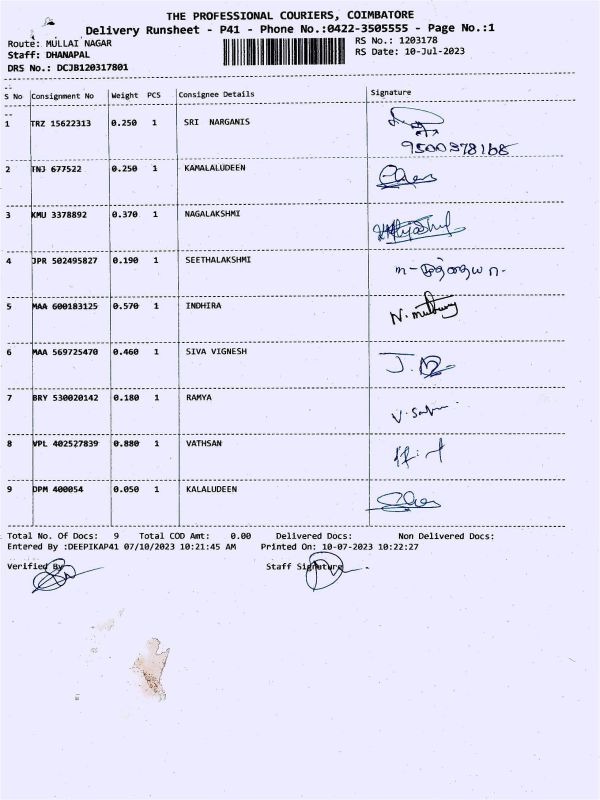 THE PROFESSIONAL COURIERS, COIMBATORE
Delivery Runsheet - P41 - Phone No.:0422-3505555 - Page No.:1
Route: MULLAI NAGAR
RS No.: 1203178
Staff: DHANAPAL
RS Date: 10-Jul-2023
DRS No.: DCJB120317801
S No Consignment No Weight PCS Consignee Details Signature
1 TRZ 15622313 0.250 1 SRI NARGANIS
9500378168
2 TNJ 677522 0.250 1 KAMALALUDEEN
3 KMU 3378892 0.370 1 NAGALAKSHMI
4 JPR 502495827 0.190 1 SEETHALAKSHMI
5 MAA 600183125 0.570 1 INDHIRA
6 MAA 569725470 0.460 1 SIVA VIGNESH
7 BRY 530020142 0.180 1 RAMYA
8 VPL 402527839 0.880 1 VATHSAN
9 DPM 400054 0.050 1 KALALUDEEN
Total No. Of Docs: 9 Total COD Amt: 0.00 Delivered Docs: Non Delivered Docs:
Entered By :DEEPIKAP41 07/10/2023 10:21:45 AM Printed On: 10-07-2023 10:22:27
Verified By Staff Signature